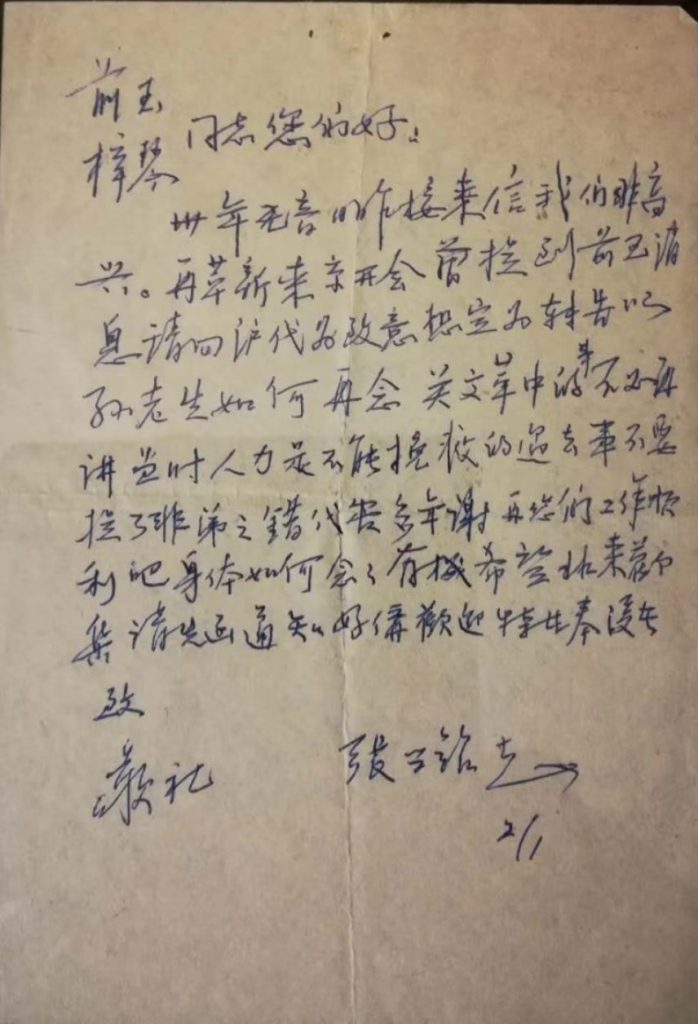 前玉
梓琴 同志您们好。
卅年无音昨接来信我们非常高
兴。再革新来京开会曾提到前玉消
息请回沪代为致意想定为转告以
孙老先如何再念关文革中的事不必再
讲当时人力是不能挽救的过去事不要
提了非弟之错代 多年谢再您们工作顺
利吧身体如何念之有机希望北来
集请先函通知好备欢迎 奉复
致
敬礼 张公铭
2/1